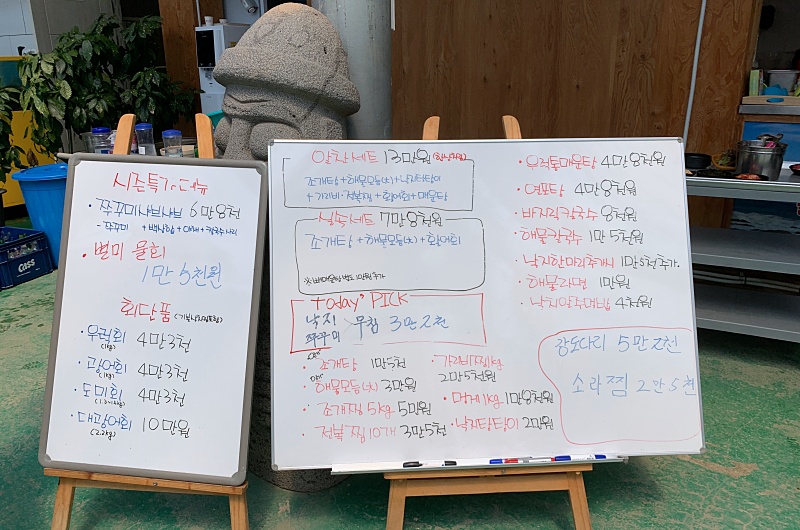 시즌특가메뉴
쭈꾸미샤브샤브 6만8천
- 쭈꾸미 + 백합 + 야채 + 칼국수사리
별미 물회
1만5천원
회단품
우럭회 4만3천
(1kg)
광어회 4만3천
(1kg)
도미회 4만3천
대광어회 10만원
(2.2kg)
알찬세트 13만원
조개탕+해물모듬(大)+낙지탕탕이
+가리비·전복찜+황어회+매운탕
실속세트 7만8천원
조개탕+해물모듬(大)+황어회
※매운탕 별도 1만원추가
Today' PICK
낙지
쭈꾸미
무침 3만2천
조개탕 1만5천
해물모듬(大) 3만원
조개찜 5kg 5만원
전복찜 10개 3만5천
가리비찜1kg
2만5천원
멍게1kg 1만8천원
낙지탕탕이 2만원
우럭통매운탕 4만8천원
연포탕 4만8천원
바지락칼국수 8천원
해물칼국수 1만5천원
낙지한마리추가시 1만5천추가
해물라면 1만원
낙지주먹밥 4천원
강도다리 5만2천
소라찜 2만5천
Cass